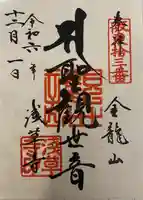 奉拝
坂東拾三番
金龍山
聖観世音
浅草寺
令和六年
十二月一日